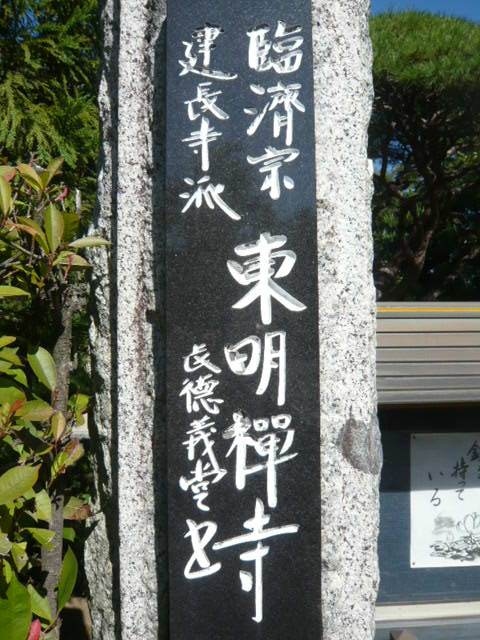 臨濟宗
建長寺派
東明禪寺
長德義堂書
持って
いる